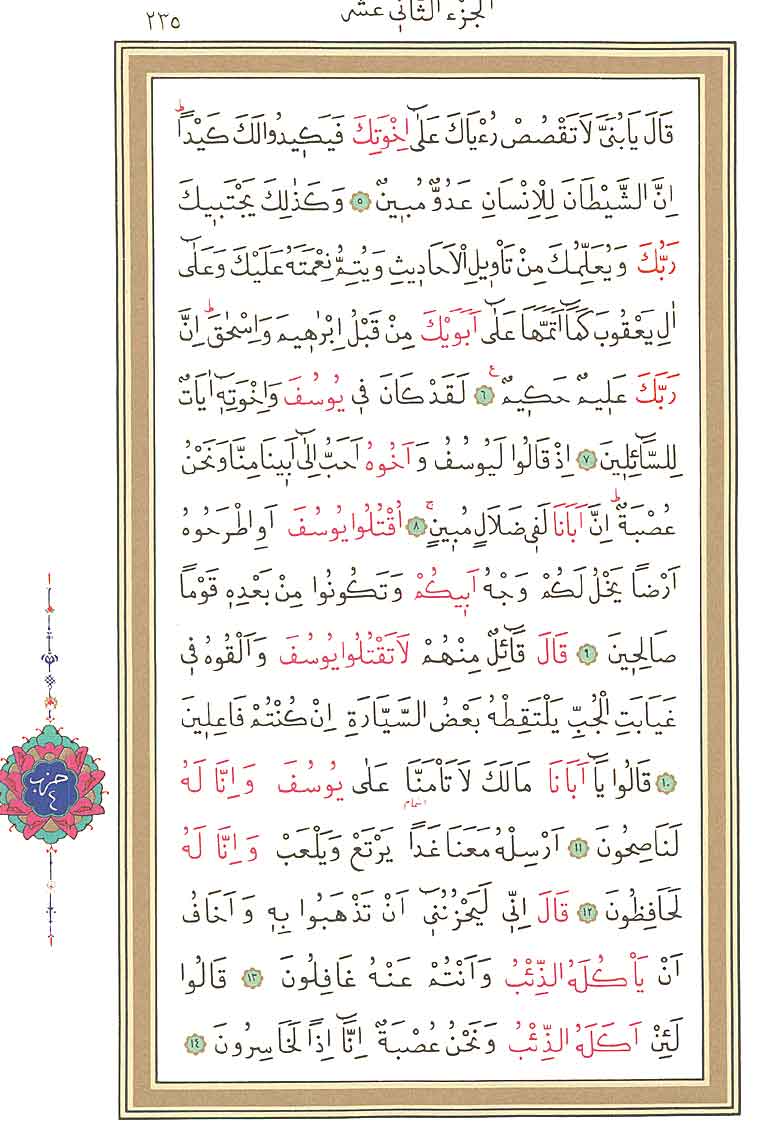 الجزء الثاني عشر
٢٣٥
قَالَ يَا بُنَيَّ لَا تَقْصُصْ رُءْيَاكَ عَلٰٓى اِخْوَتِكَ فَيَكِيدُوا لَكَ كَيْدًاۜ
اِنَّ الشَّيْطَانَ لِلْاِنْسَانِ عَدُوٌّ مُبِينٌ ٥ وَكَذٰلِكَ يَجْتَبِيكَ
رَبُّكَ وَيُعَلِّمُكَ مِنْ تَأْوِيلِ الْاَحَادِيثِ وَيُتِمُّ نِعْمَتَهُ عَلَيْكَ وَعَلٰٓى
اٰلِ يَعْقُوبَ كَمَٓا اَتَمَّهَا عَلٰٓى اَبَوَيْكَ مِنْ قَبْلُ اِبْرٰهِيمَ وَاِسْحٰقَۜ اِنَّ
رَبَّكَ عَلِيمٌ حَكِيمٌ ٦ لَقَدْ كَانَ فِي يُوسُفَ وَاِخْوَتِهٖٓ اٰيَاتٌ
لِلسَّٓائِلِينَ ٧ اِذْ قَالُوا لَيُوسُفُ وَاَخُوهُ اَحَبُّ اِلٰٓى اَبِينَا مِنَّا وَنَحْنُ
عُصْبَةٌۜ اِنَّ اَبَانَا لَفِي ضَلَالٍ مُبِينٍ ٨ اُقْتُلُوا يُوسُفَ اَوِ اطْرَحُوهُ
اَرْضًا يَخْلُ لَكُمْ وَجْهُ اَبِيكُمْ وَتَكُونُوا مِنْ بَعْدِهٖ قَوْمًا
صَالِحِينَ ٩ قَالَ قَٓائِلٌ مِنْهُمْ لَا تَقْتُلُوا يُوسُفَ وَاَلْقُوهُ فِي
غَيَابَتِ الْجُبِّ يَلْتَقِطْهُ بَعْضُ السَّيَّارَةِ اِنْ كُنْتُمْ فَاعِلِينَ
١٠ قَالُوا يَٓا اَبَانَا مَا لَكَ لَا تَأْمَنَّا عَلٰى يُوسُفَ وَاِنَّا لَهُ
اشمام
لَنَاصِحُونَ ١١ اَرْسِلْهُ مَعَنَا غَدًا يَرْتَعْ وَيَلْعَبْ وَاِنَّا لَهُ
لَحَافِظُونَ ١٢ قَالَ اِنِّي لَيَحْزُنُنِٓي اَنْ تَذْهَبُوا بِهٖ وَاَخَافُ
اَنْ يَأْكُلَهُ الذِّئْبُ وَاَنْتُمْ عَنْهُ غَافِلُونَ ١٣ قَالُوا
لَئِنْ اَكَلَهُ الذِّئْبُ وَنَحْنُ عُصْبَةٌ اِنَّٓا اِذًا لَخَاسِرُونَ ١٤
حزب
٤